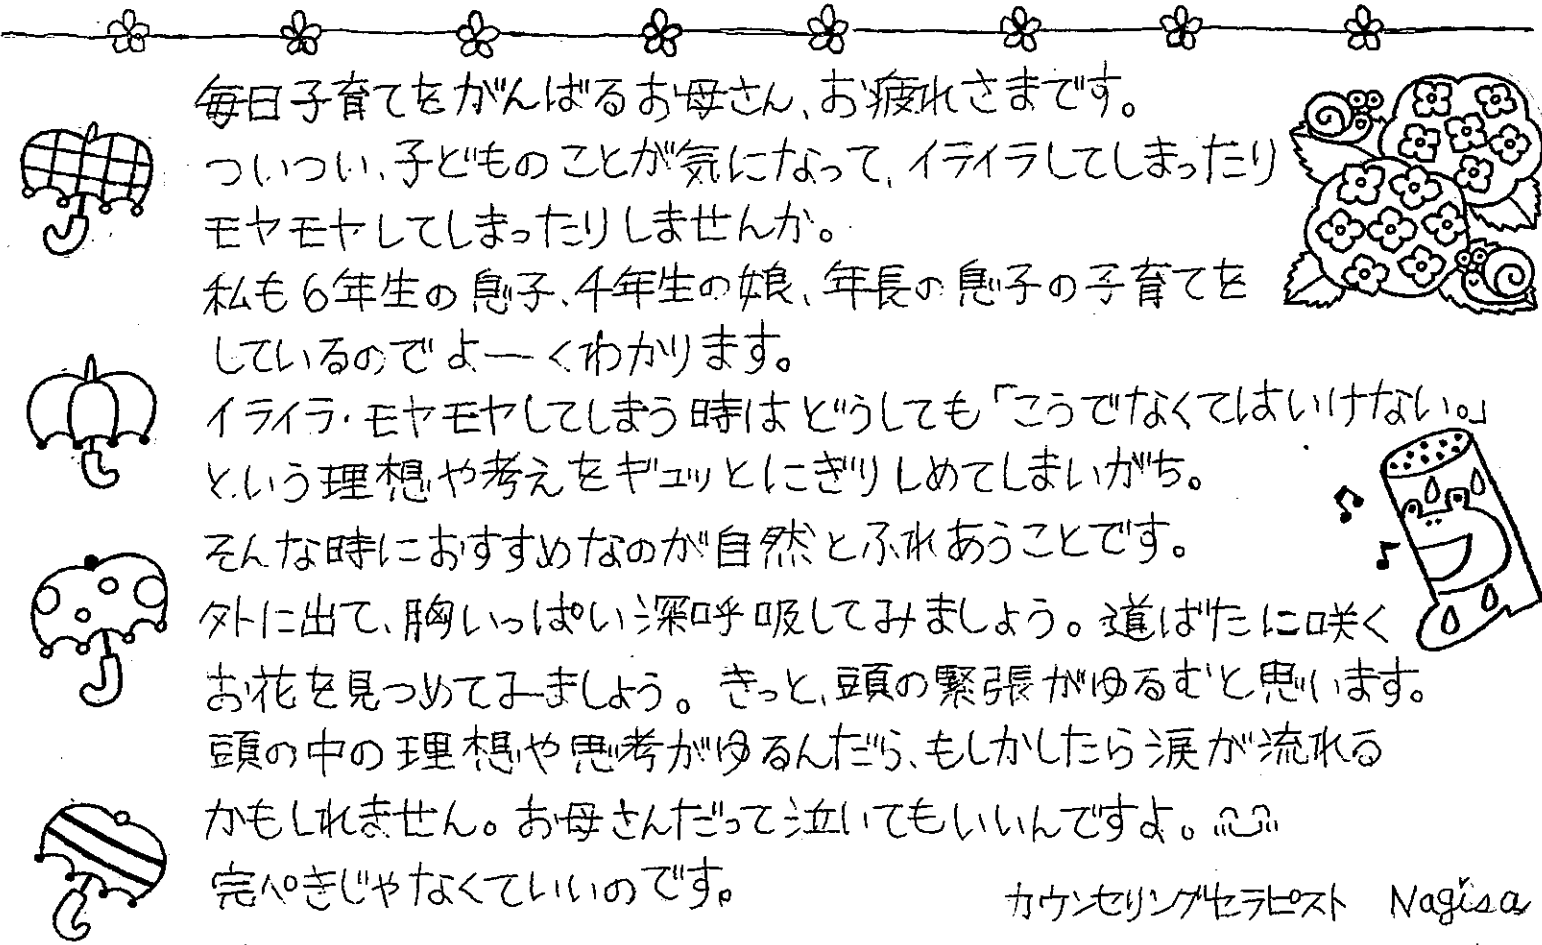 毎日子育てをがんばるお母さん、お疲れさまです。
ついつい、子どものことが気になって、イライラしてしまったり
モヤモヤしてしまったりしませんか。
私も6年生の息子、4年生の娘、年長の息子の子育てを
しているのでよーくわかります。
イライラ・モヤモヤしてしまう時はどうしても「こうでなくてはいけない。」
という理想や考えをギュッとにぎりしめてしまいがち。
そんな時におすすめなのが自然とふれあうことです。
外に出て、胸いっぱい深呼吸してみましょう。道ばたに咲く
お花を見つめてみましょう。きっと、頭の緊張がゆるむと思います。
頭の中の理想や思考がゆるんだら、もしかしたら涙が流れる
かもしれません。お母さんだって泣いてもいいんですよ。
完ぺきじゃなくていいのです。
カウンセリングセラピスト Nagisa